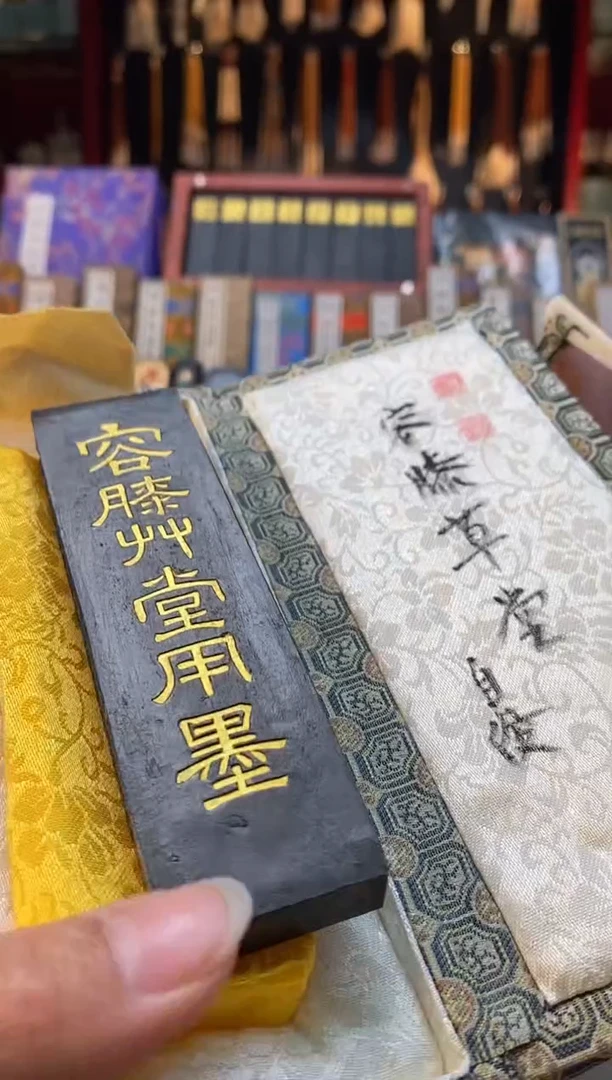 容膝艸堂用墨
容膝草堂自